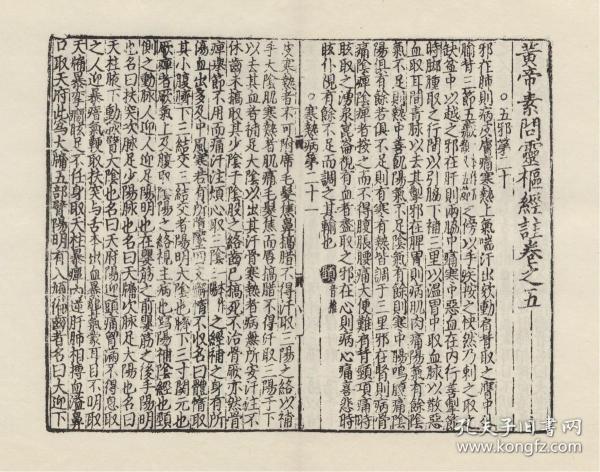 黃帝素問靈樞經註卷之五
○五邪第二十
邪在肺則病皮膚痛寒熱上氣喘汗出欬動肩背取之膺中外
腧背三節五藏之傍以手疾按之快然乃刺之取之
缺盆中以越之邪在肝則兩脇中痛寒中惡血在内行善掣節
時脚腫取之行間以引脇下補三里以温胃中取血脉以散惡
血取耳間青脉以去其掣邪在脾胃則病肌肉痛陽氣有餘陰
氣不足則熱中善飢陽氣不足陰氣有餘則寒中腸鳴腹痛陰
陽俱有餘若俱不足則有寒有熱皆調于三里邪在腎則病骨
痛陰痺陰痺者按之而不得腹脹腰痛大便難肩背頸項痛時
眩取之湧泉崑崙視有血者盡取之邪在心則病心痛喜悲時
眩仆視有餘不足而調之其輸也
○寒熱病第二十一
皮寒熱者不可附席毛髮焦鼻槁腊不得汗取三陽之絡以補
手太陰肌寒熱者肌痛毛髮焦而唇槁腊不得汗取三陽于下
以去其血者補足太陰以出其汗骨寒熱者病無所安汗注不
休齒未槁取其少陰于陰股之絡齒已槁死不治骨厥亦然骨
痺舉節不用而痛汗注煩心取三陰之經補之身有所
傷血出多及中風寒若有所墮墜四支懈惰不收名曰體惰取
其小腹臍下三結交三結交者陽明太陰也臍下三寸關元也
厥痺者厥氣上及腹取陰陽之絡視主病也瀉陽補陰經也頸
側之動脉人迎人迎足陽明也在嬰筋之前嬰筋之後手陽明
也名曰扶突次脉足少陽脉也名曰天牖次脉足太陽也名曰
天柱腋下動脉臂太陰也名曰天府陽迎頭痛胷滿不得息取
之人迎暴瘖氣鞕取扶突與舌本出血暴聾氣蒙耳目不明取
天牖暴攣癇眩足不任身取天柱暴癉内逆肝肺相搏血溢鼻
口取天府此為大牖五部臂陽明有入頄徧齒者名曰大迎下
孔夫子旧书网
www.kongfz.com